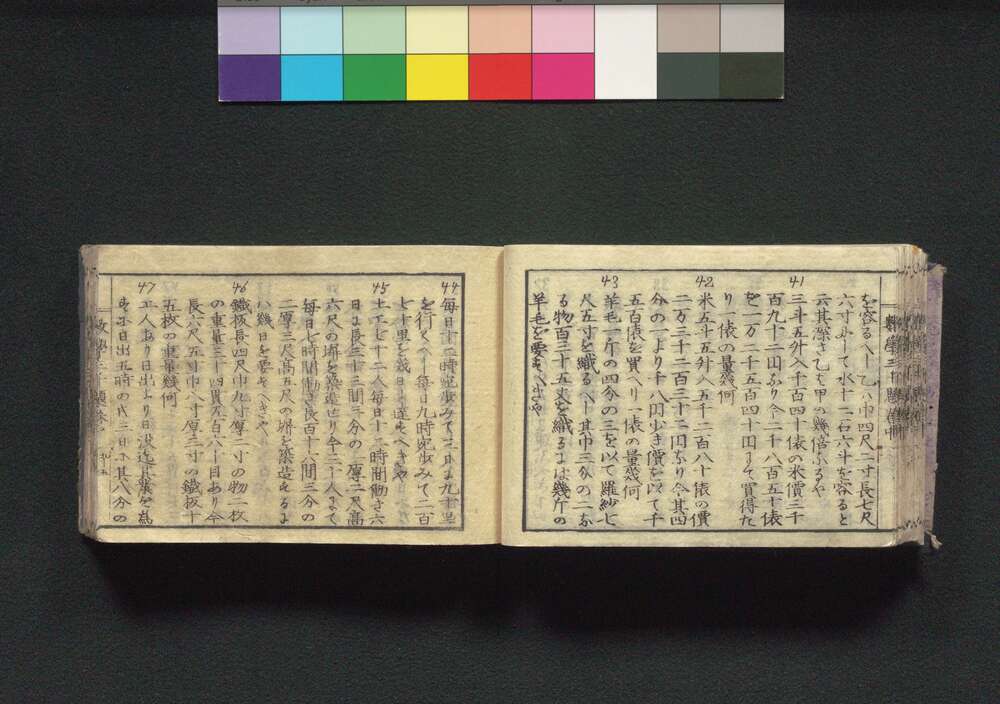 を容るべし乙ハ巾四尺二寸長七尺
六寸にして水十二石六斗を容ると
云其深さ乙も甲の幾倍なるや
41
三斗五升入千百四十俵の米價三千
百九十二圓なり今二千八百五十俵
を一万二千五百四十圓にて買得た
り一俵の量幾何
42
米五斗五升入五千二百八十俵の價
二万三千二百三十二圓なり今其四
分の一より千八圓少き價を以て千
五百俵を買へり一俵の量幾何
43
羊毛一斤の四分の三を以て羅紗七
尺五寸を織るべし其巾三分の二な
る物百三十五丈を織るには幾斤の
羊毛を要すべきや
44
毎日十二時宛歩みて二日に九十里
を行くべし毎日九時宛歩みて二百
七十里を幾日に達すべきや
45
土工七十二人毎日十二時間働き六
日に長三十三間三分の一厚二尺高
六尺の塀を築造せり今三十人にて
毎日七時間働き長百十六間三分の
二厚三尺高五尺の塀を築造するに
ハ幾日を要すべきや
46
鐵板長四尺巾九寸厚二寸の物三枚
の重量三十四貫五百八十目あり今
長六尺五寸巾八寸厚三寸の鐵板十
五枚の重量幾何
47
工人あり日出より日没迄其業を為
日出五時の代二日に其八分の